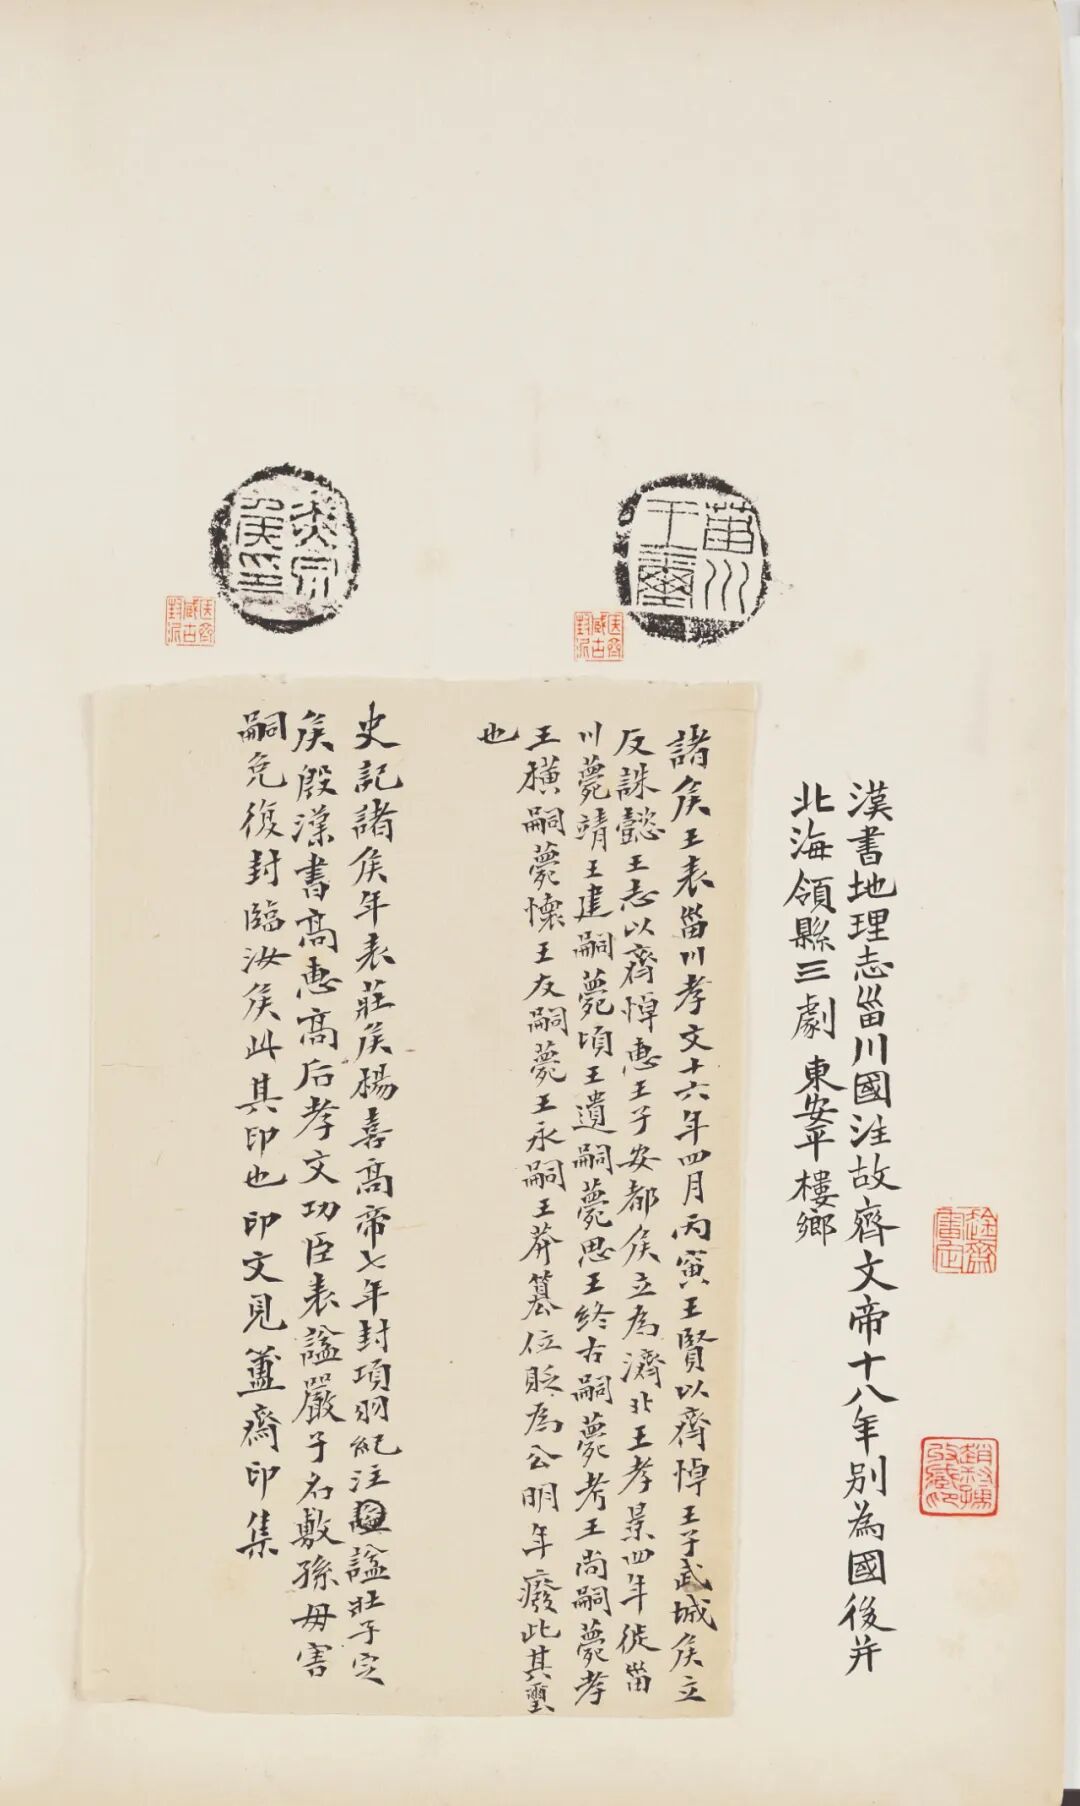 菑川王璽
赤泉侯印
漢書地理志甾川國注故齊文帝十八年别為國後并
北海領縣三劇 東安平 樓鄉
諸矦王表甾川孝文十六年四月丙寅王賢以齊悼王子武城矦立
反誅懿王志以齊悼惠王子安都矦立為濟北王孝景四年徙甾
川薨靖王建嗣薨頃王遺嗣薨思王終古嗣薨考王尚嗣薨孝
王橫嗣薨懷王友嗣薨王永嗣王莽篡位貶為公明年廢此其璽
也
史記諸矦年表莊矦楊喜高帝七年封項羽紀注諡壯子定
矦殷漢書高惠高后孝文功臣表諡嚴子名敷孫毋害
嗣免復封臨汝矦此其印也印文見簠齋印集